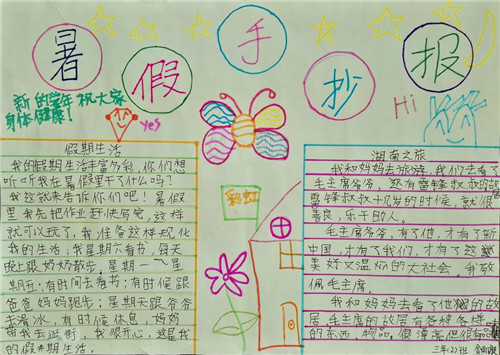 暑假手抄报
新的学年祝大家
身体健康!
yes
Hi
假期生活
我的假期生活丰富多彩,你们想
听听我在暑假里干了什么吗?
我这就来告诉你们吧!暑假
里我先把作业赶快写完,这样
就可以玩了,我准备这样规化
我的生活:我星期六看书,每天
晚上跟奶奶散步。星期一~星
期五:有时间去看书;有时候跟
爸爸妈妈跑步;星期天跟爷爷
去滑冰,有时候休息,妈妈
带我去逛街,我很开心,这是我
的假期生活。
彩虹
湖南之旅
我和妈妈去旅游,我们去看了
毛主席爷爷,还有雷锋叔叔的
雷锋叔叔十几岁的时候,就很
善良,乐于助人。
毛主席爷爷,有了他,才有了新
中国,才有了我们,才有了这
美好又温暖的大社会。我敬
佩毛主席。
我和妈妈去看了他的故
居,毛主席的故居有各种各样
的东西,物品,很漂亮但很
三年(2)班